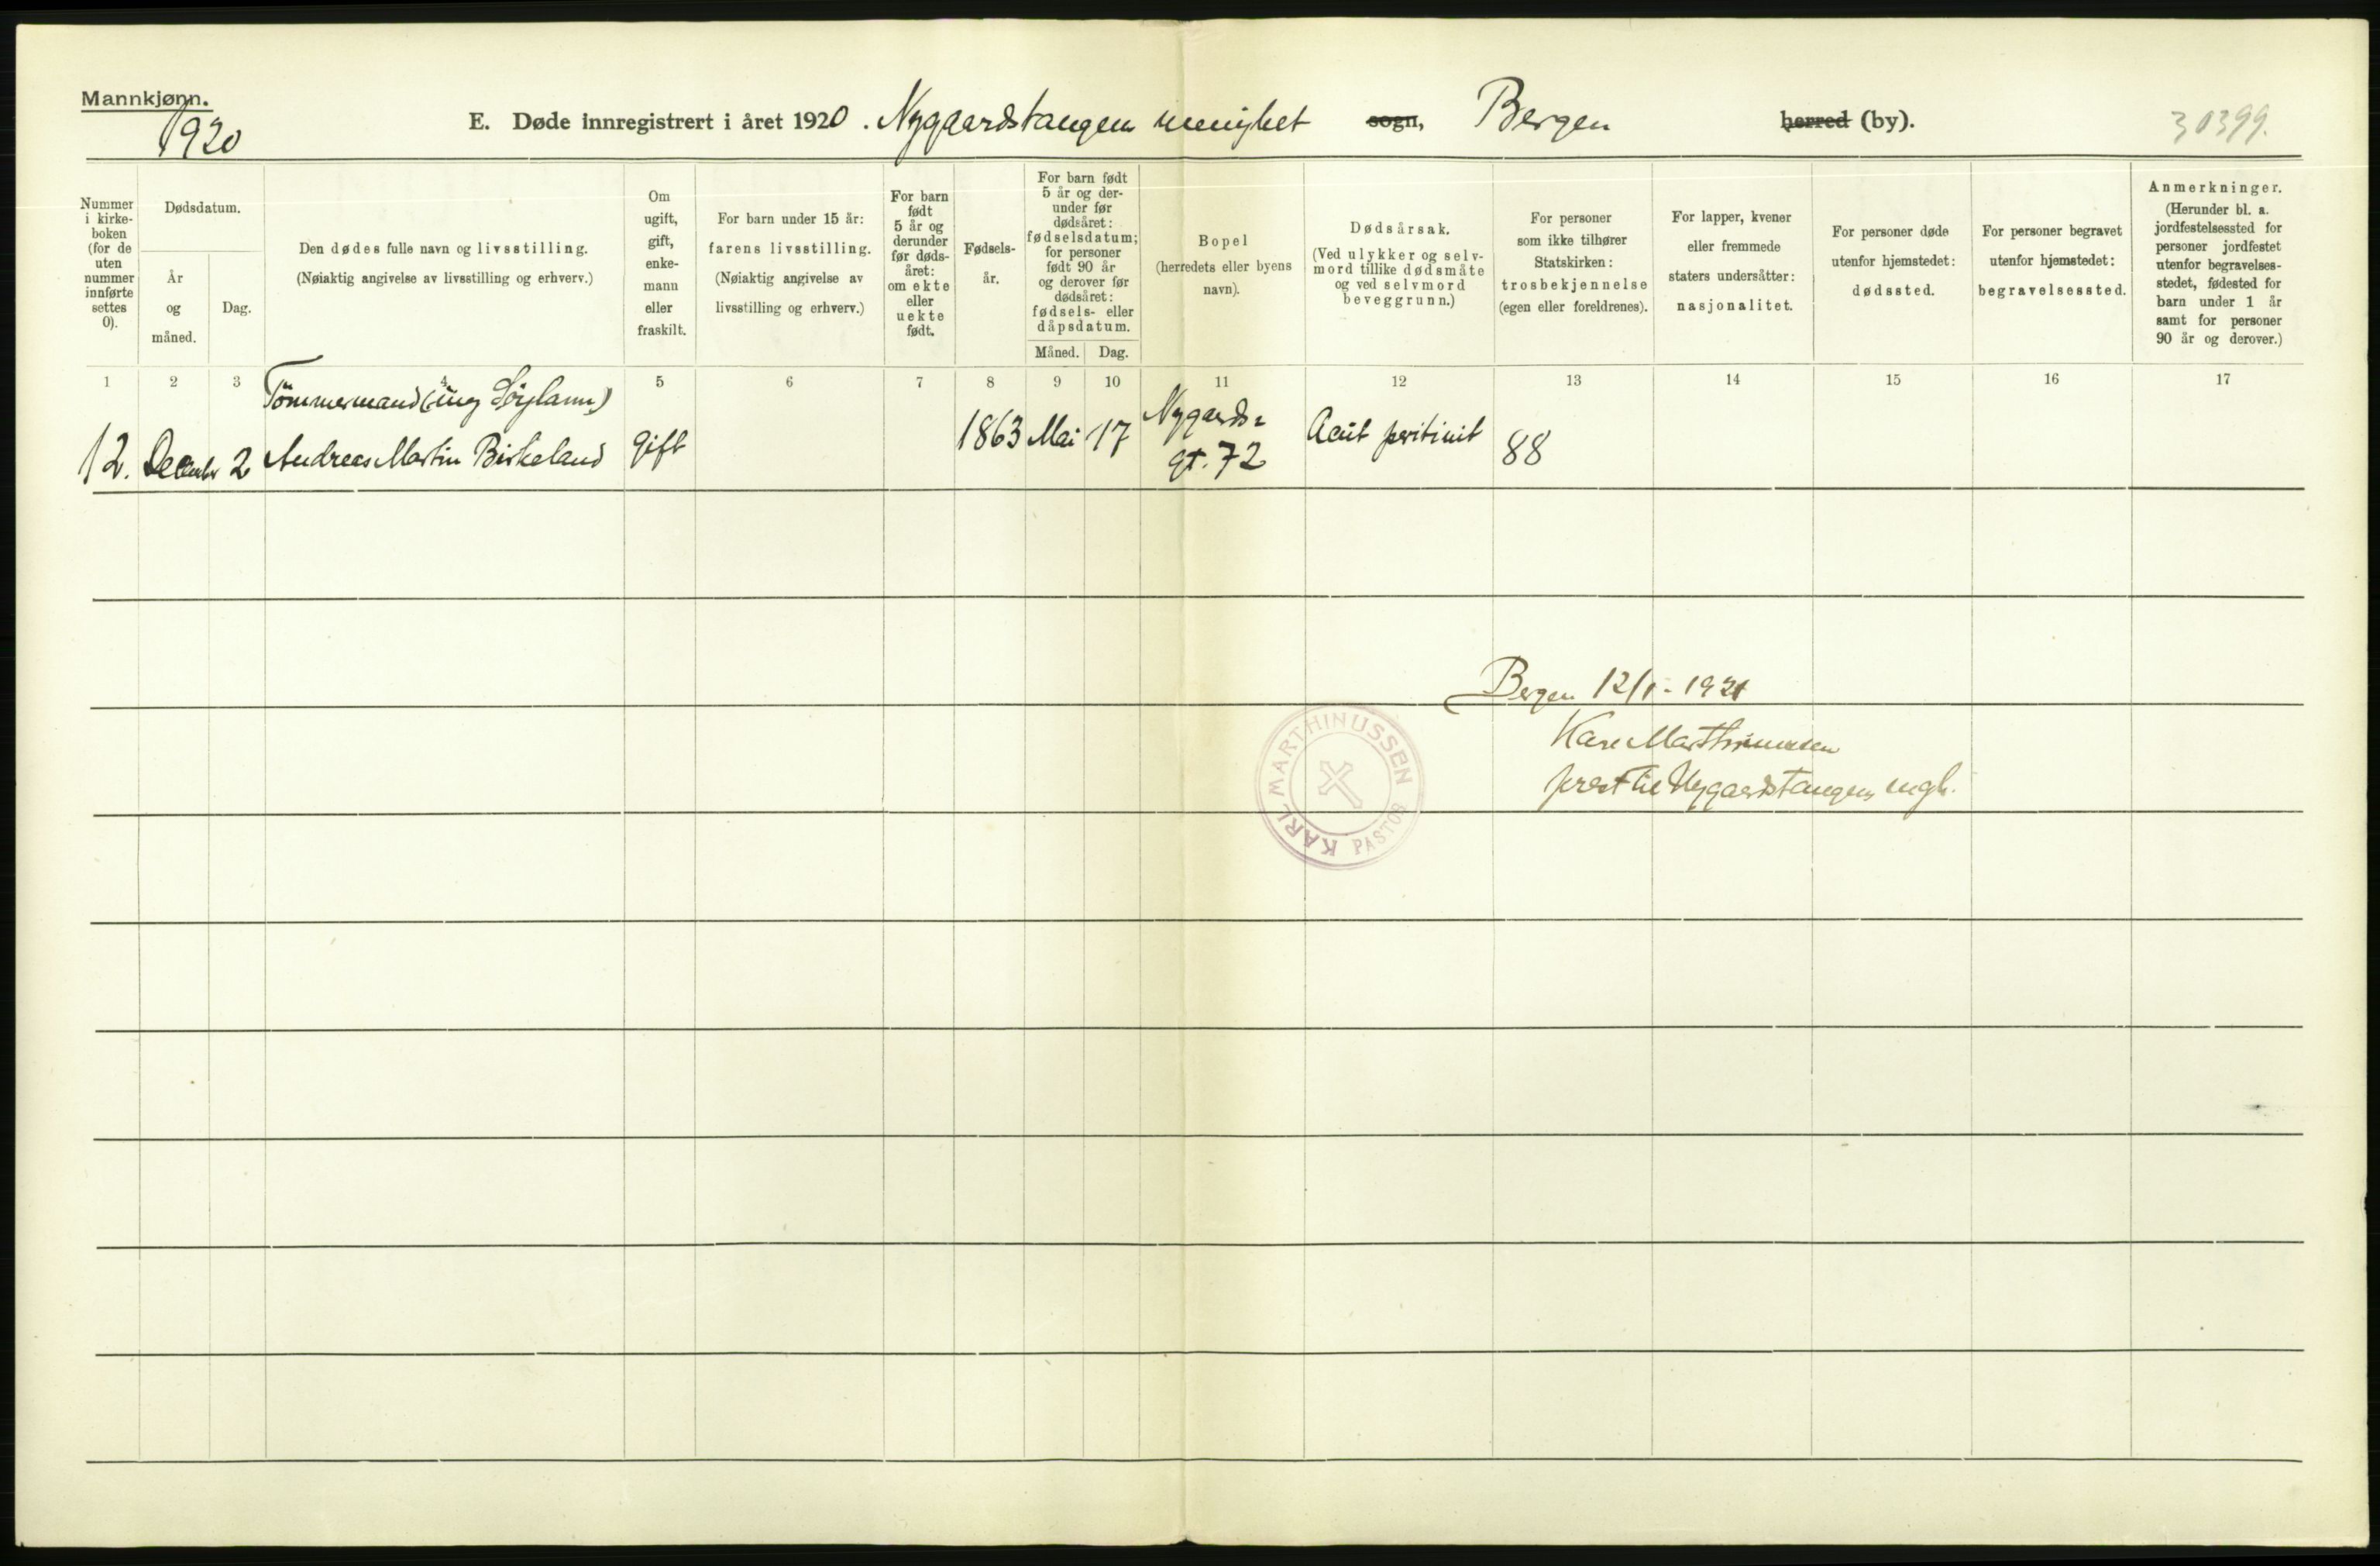 Mannkjønn.
1920
E. Døde innregistrert i året 1920. Nygaardstangens menighet sogn, Bergen herred (by).
30399.
Nummer i kirkeboken (for de uten nummer innførte settes 0).
Dødsdatum.
År og måned.
Dag.
Den dødes fulle navn og livsstilling.
(Nøiaktig angivelse av livsstilling og erhverv.)
Om ugift, gift, enkemann eller fraskilt.
For barn under 15 år:
farens livsstilling.
(Nøiaktig angivelse av livsstilling og erhverv.)
For barn født 5 år og derunder før dødsåret: om ekte eller uekte født.
Fødselsår.
For barn født 5 år og derunder før dødsåret: fødselsdatum; for personer født 90 år og derover før dødsåret: fødsels- eller dåpsdatum.
Måned.
Dag.
Bopel
(herredets eller byens navn).
Dødsårsak.
(Ved ulykker og selvmord tillike dødsmåte og ved selvmord beveggrunn.)
For personer som ikke tilhører Statskirken: trosbekjennelse (egen eller foreldrenes).
For lapper, kvener eller fremmede staters undersåtter: nasjonalitet.
For personer døde utenfor hjemstedet: dødssted.
For personer begravet utenfor hjemstedet: begravelsessted.
Anmerkninger.
(Herunder bl. a. jordfestelsessted for personer jordfestet utenfor begravelsesstedet, fødested for barn under 1 år samt for personer 90 år og derover.)
1 2 3 4 5 6 7 8 9 10 11 12 13 14 15 16 17
Tömmermand
12. December 2 Andreas Martin Birkeland gift 1863 Mai 17 Nygaards=
gt. 72 Acut peritinit 88
Bergen 12/1-1921
Karl Marthinussen
prest til Nygaardstangens mgh.
KARL MARTHINUSSEN
PASTOR